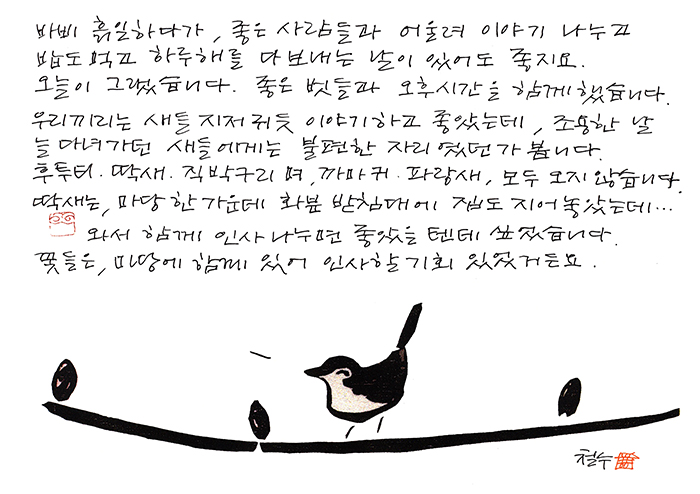 바삐 흙일하다가, 좋은 사람들과 어울려 이야기 나누고
밥도 먹고 하루해를 다 보내는 날이 있어도 좋지요.
오늘이 그랬습니다. 좋은 벗들과 오후시간을 함께했습니다.
우리끼리는 새들 지저귀듯 이야기하고 좋았는데, 조용한 날
늘 다녀가던 새들에게는 불편한 자리였던가 봅니다.
후투티·딱새·직박구리며, 까마귀·파랑새, 모두 오지 않습니다.
딱새는, 마당 한가운데 화분 받침대에 집도 지어 놓았는데…
와서 함께 인사 나누면 좋았을 텐데 싶었습니다.
꽃들은, 마당에 함께 있어 인사할 기회 있었거든요.
철수